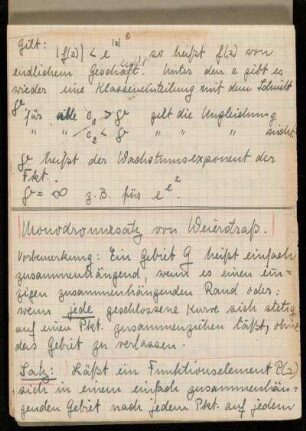 Gilt: |f(z)| < e^{|z|^a}, so heißt f(z) von
endlichem Geschlecht. Unter den a gibt es
wieder eine Klasseneinteilung mit dem Schnitt
für alle a₁ > gilt die Ungleichung
" " a₂ < " " " nicht
heißt der Wachstumsexponent der
Fkt.
= ∞ z.B. für e^{e^z}
Monodromiesatz von Weierstraß.
Vorbemerkung: Ein Gebiet G heißt einfach
zusammenhängend, wenn es einen ein-
zigen zusammenhängenden Rand oder:
wenn jede geschlossene Kurve sich stetig
auf einen Pkt. zusammenziehen läßt, ohne
das Gebiet zu verlassen.
Satz: Läßt ein Funktionselement P(z)
sich in einem einfach zusammenhän-
genden Gebiet nach jedem Pkt. auf jedem